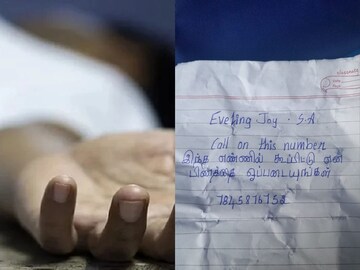 Eveling . Joy . S.A
Call on this number
இந்த எண்ணில் கூப்பிட்டு என்
பிணத்தை ஒப்படையுங்கள்